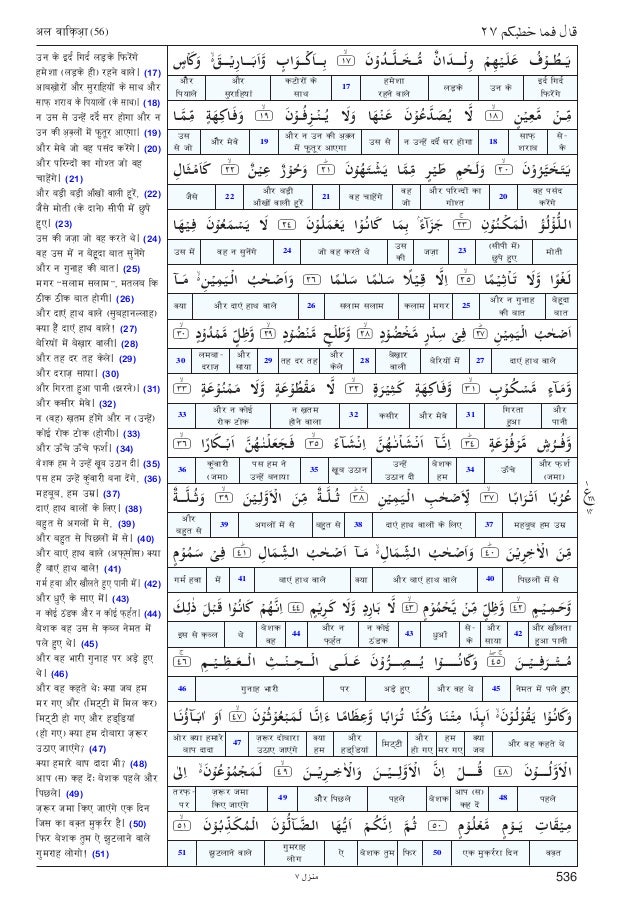 अल वाकिआ़ (56)
قال فما خطبكم ٢٧
उन के इर्द गिर्द लड़के फिरेंगे
हमेशा (लड़के ही) रहने वाले। (17)
आबख़ोरों और सुराहियों के साथ और
साफ़ शराब के पियालों (के साथ)। (18)
न उस से उन्हें दर्दे सर होगा और न
उन की अ़क़्लों में फ़ुतूर आएगा। (19)
और मेवे जो वह पसंद करेंगे। (20)
और परिन्दों का गोश्त जो वह
चाहेंगे। (21)
और बड़ी बड़ी आँखों वाली हूरें, (22)
जैसे मोती (के दाने) सीपी में छुपे
हुए। (23)
उस की जज़ा जो वह करते थे। (24)
वह उस में न बेहूदा बात सुनेंगे
और न गुनाह की बात। (25)
मगर "सलाम सलाम", मतलब कि
ठीक ठीक बात होगी। (26)
और दाएं हाथ वाले (सुबहानल्लाह)
क्या हैं दाएं हाथ वाले! (27)
बेरियों में बेख़ार वाली। (28)
और तह दर तह केले। (29)
और दराज़ साया। (30)
और गिरता हुआ पानी (झरने)। (31)
और कसीर मेवे। (32)
न (वह) ख़तम होंगे और न (उन्हें)
कोई रोक टोक (होगी)। (33)
और ऊँचे ऊँचे फ़र्श। (34)
बेशक हम ने उन्हें ख़ूब उठान दी। (35)
पस हम उन्हें कुंवारी बना देंगे, (36)
महबूब, हम उम्र। (37)
दाएं हाथ वालों के लिए। (38)
बहुत से अगलों में से, (39)
और बहुत से पिछलों में से। (40)
और बाएं हाथ वाले (अफ़्सोस) क्या
हैं बाएं हाथ वाले! (41)
गर्म हवा और खौलते हुए पानी में। (42)
और धुएँ के साए में। (43)
न कोई ठंडक और न कोई फ़र्हत। (44)
बेशक वह उस से क़ब्ल नेमत में
पले हुए थे। (45)
और वह भारी गुनाह पर अड़े हुए
थे। (46)
और वह कहते थेः क्या जब हम
मर गए और (मिट्टी में मिल कर)
मिट्टी हो गए और हड्डियां
(हो गए) क्या हम दोबारा ज़रूर
उठाए जाएंगे? (47)
क्या हमारे बाप दादा भी? (48)
आप (स) कह देंः बेशक पहले और
पिछले। (49)
ज़रूर जमा किए जाएंगे एक दिन
जिस का वक़्त मुक़र्रर है। (50)
फिर बेशक तुम ऐ झुटलाने वाले
गुमराह लोगो! (51)
يَطُوْفُ عَلَيْهِمْ وِلْدَانٌ مُّخَلَّدُوْنَ ﴿١٧﴾ بِاَكْوَابٍ وَّاَبَارِيْقَ ۙ وَكَاْسٍ
इर्द गिर्द फिरेंगे उन के लड़के हमेशा रहने वाले 17 कटोरों के साथ और सुराहियां और पियाले
مِّنْ مَّعِيْنٍ ﴿١٨﴾ لَّا يُصَدَّعُوْنَ عَنْهَا وَلَا يُنْزِفُوْنَ ﴿١٩﴾ وَفَاكِهَةٍ مِّمَّا
से-के साफ़ शराब 18 न उन्हें दर्दे सर होगा उस से और न उन की अ़क़्ल में फ़ुतूर आएगा 19 और मेवे उस से जो
يَتَخَيَّرُوْنَ ﴿٢٠﴾ وَلَحْمِ طَيْرٍ مِّمَّا يَشْتَهُوْنَ ﴿٢١﴾ وَحُوْرٌ عِيْنٌ ﴿٢٢﴾ كَاَمْثَالِ
वह पसंद करेंगे 20 और परिन्दों का गोश्त वह जो वह चाहेंगे 21 और बड़ी आँखों वाली हूरें 22 जैसे
اللُّؤْلُؤِ الْمَكْنُوْنِ ﴿٢٣﴾ جَزَآءًۢ بِمَا كَانُوْا يَعْمَلُوْنَ ﴿٢٤﴾ لَا يَسْمَعُوْنَ فِيْهَا
मोती (सीपी में) छुपे हुए 23 जज़ा उस की जो वह करते थे 24 वह न सुनेंगे उस में
لَغْوًا وَّلَا تَاْثِيْمًا ﴿٢٥﴾ اِلَّا قِيْلًا سَلٰمًا سَلٰمًا ﴿٢٦﴾ وَاَصْحٰبُ الْيَمِيْنِ ۙ مَآ
बेहूदा बात और न गुनाह की बात 25 मगर कलाम सलाम सलाम 26 और दाएं हाथ वाले क्या
اَصْحٰبُ الْيَمِيْنِ ﴿٢٧﴾ فِيْ سِدْرٍ مَّخْضُوْدٍ ﴿٢٨﴾ وَّطَلْحٍ مَّنْضُوْدٍ ﴿٢٩﴾ وَّظِلٍّ مَّمْدُوْدٍ ﴿٣٠﴾
दाएं हाथ वाले 27 बेरियों में बेख़ार वाली 28 और केले तह दर तह 29 और साया लमबा-दराज़ 30
وَّمَآءٍ مَّسْكُوْبٍ ﴿٣١﴾ وَّفَاكِهَةٍ كَثِيْرَةٍ ﴿٣٢﴾ لَّا مَقْطُوْعَةٍ وَّلَا مَمْنُوْعَةٍ ﴿٣٣﴾
और पानी गिरता हुआ 31 और मेवे कसीर 32 न ख़तम होने वाला और न कोई रोक टोक 33
وَّفُرُشٍ مَّرْفُوْعَةٍ ﴿٣٤﴾ اِنَّآ اَنْشَاْنٰهُنَّ اِنْشَآءً ﴿٣٥﴾ فَجَعَلْنٰهُنَّ اَبْكَارًا ﴿٣٦﴾
और फर्श (जमा) ऊँचे 34 बेशक हम उन्हें उठान दी ख़ूब उठान 35 पस हम ने उन्हें बनाया कुंवारी (जमा) 36
عُرُبًا اَتْرَابًا ﴿٣٧﴾ لِّاَصْحٰبِ الْيَمِيْنِ ﴿٣٨﴾ ثُلَّةٌ مِّنَ الْاَوَّلِيْنَ ﴿٣٩﴾ وَثُلَّةٌ
महबूब हम उम्र 37 दाएं हाथ वालों के लिए 38 बहुत से अगलों में से 39 और बहुत से
مِّنَ الْاٰخِرِيْنَ ﴿٤٠﴾ وَاَصْحٰبُ الشِّمَالِ ۙ مَآ اَصْحٰبُ الشِّمَالِ ﴿٤١﴾ فِيْ سَمُوْمٍ
पिछलों में से 40 और बाएं हाथ वाले क्या बाएं हाथ वाले 41 में गर्म हवा
وَّحَمِيْمٍ ﴿٤٢﴾ وَّظِلٍّ مِّنْ يَّحْمُوْمٍ ﴿٤٣﴾ لَّا بَارِدٍ وَّلَا كَرِيْمٍ ﴿٤٤﴾ اِنَّهُمْ كَانُوْا قَبْلَ ذٰلِكَ
और खौलता हुआ पानी 42 और साया से-के धुआँ 43 न कोई ठंडक और न फ़र्हत 44 बेशक वह थे इस से क़ब्ल
مُتْرَفِيْنَ ﴿٤٥﴾ وَكَانُوْا يُصِرُّوْنَ عَلَى الْحِنْثِ الْعَظِيْمِ ﴿٤٦﴾
नेमत में पले हुए 45 और वह थे अड़े हुए पर गुनाह भारी 46
وَكَانُوْا يَقُوْلُوْنَ ۙ اَىِٕذَا مِتْنَا وَكُنَّا تُرَابًا وَّعِظَامًا ءَاِنَّا لَمَبْعُوْثُوْنَ ﴿٤٧﴾ اَوَ اٰبَآؤُنَا
और वह कहते थे क्या जब हम मर गए और हो गए मिट्टी और हड्डियां क्या हम ज़रूर दोबारा उठाए जाएंगे 47 और क्या हमारे बाप दादा
الْاَوَّلُوْنَ ﴿٤٨﴾ قُلْ اِنَّ الْاَوَّلِيْنَ وَالْاٰخِرِيْنَ ﴿٤٩﴾ لَمَجْمُوْعُوْنَ ۙ اِلٰى
पहले 48 आप (स) कह दें बेशक पहले और पिछले 49 ज़रूर जमा किए जाएंगे तरफ़-पर
مِيْقَاتِ يَوْمٍ مَّعْلُوْمٍ ﴿٥٠﴾ ثُمَّ اِنَّكُمْ اَيُّهَا الضَّآلُّوْنَ الْمُكَذِّبُوْنَ ﴿٥١﴾
वक़्त एक मुक़र्ररा दिन 50 फिर बेशक तुम ऐ गुमराह लोग झुटलाने वाले 51
منزل ٧
536